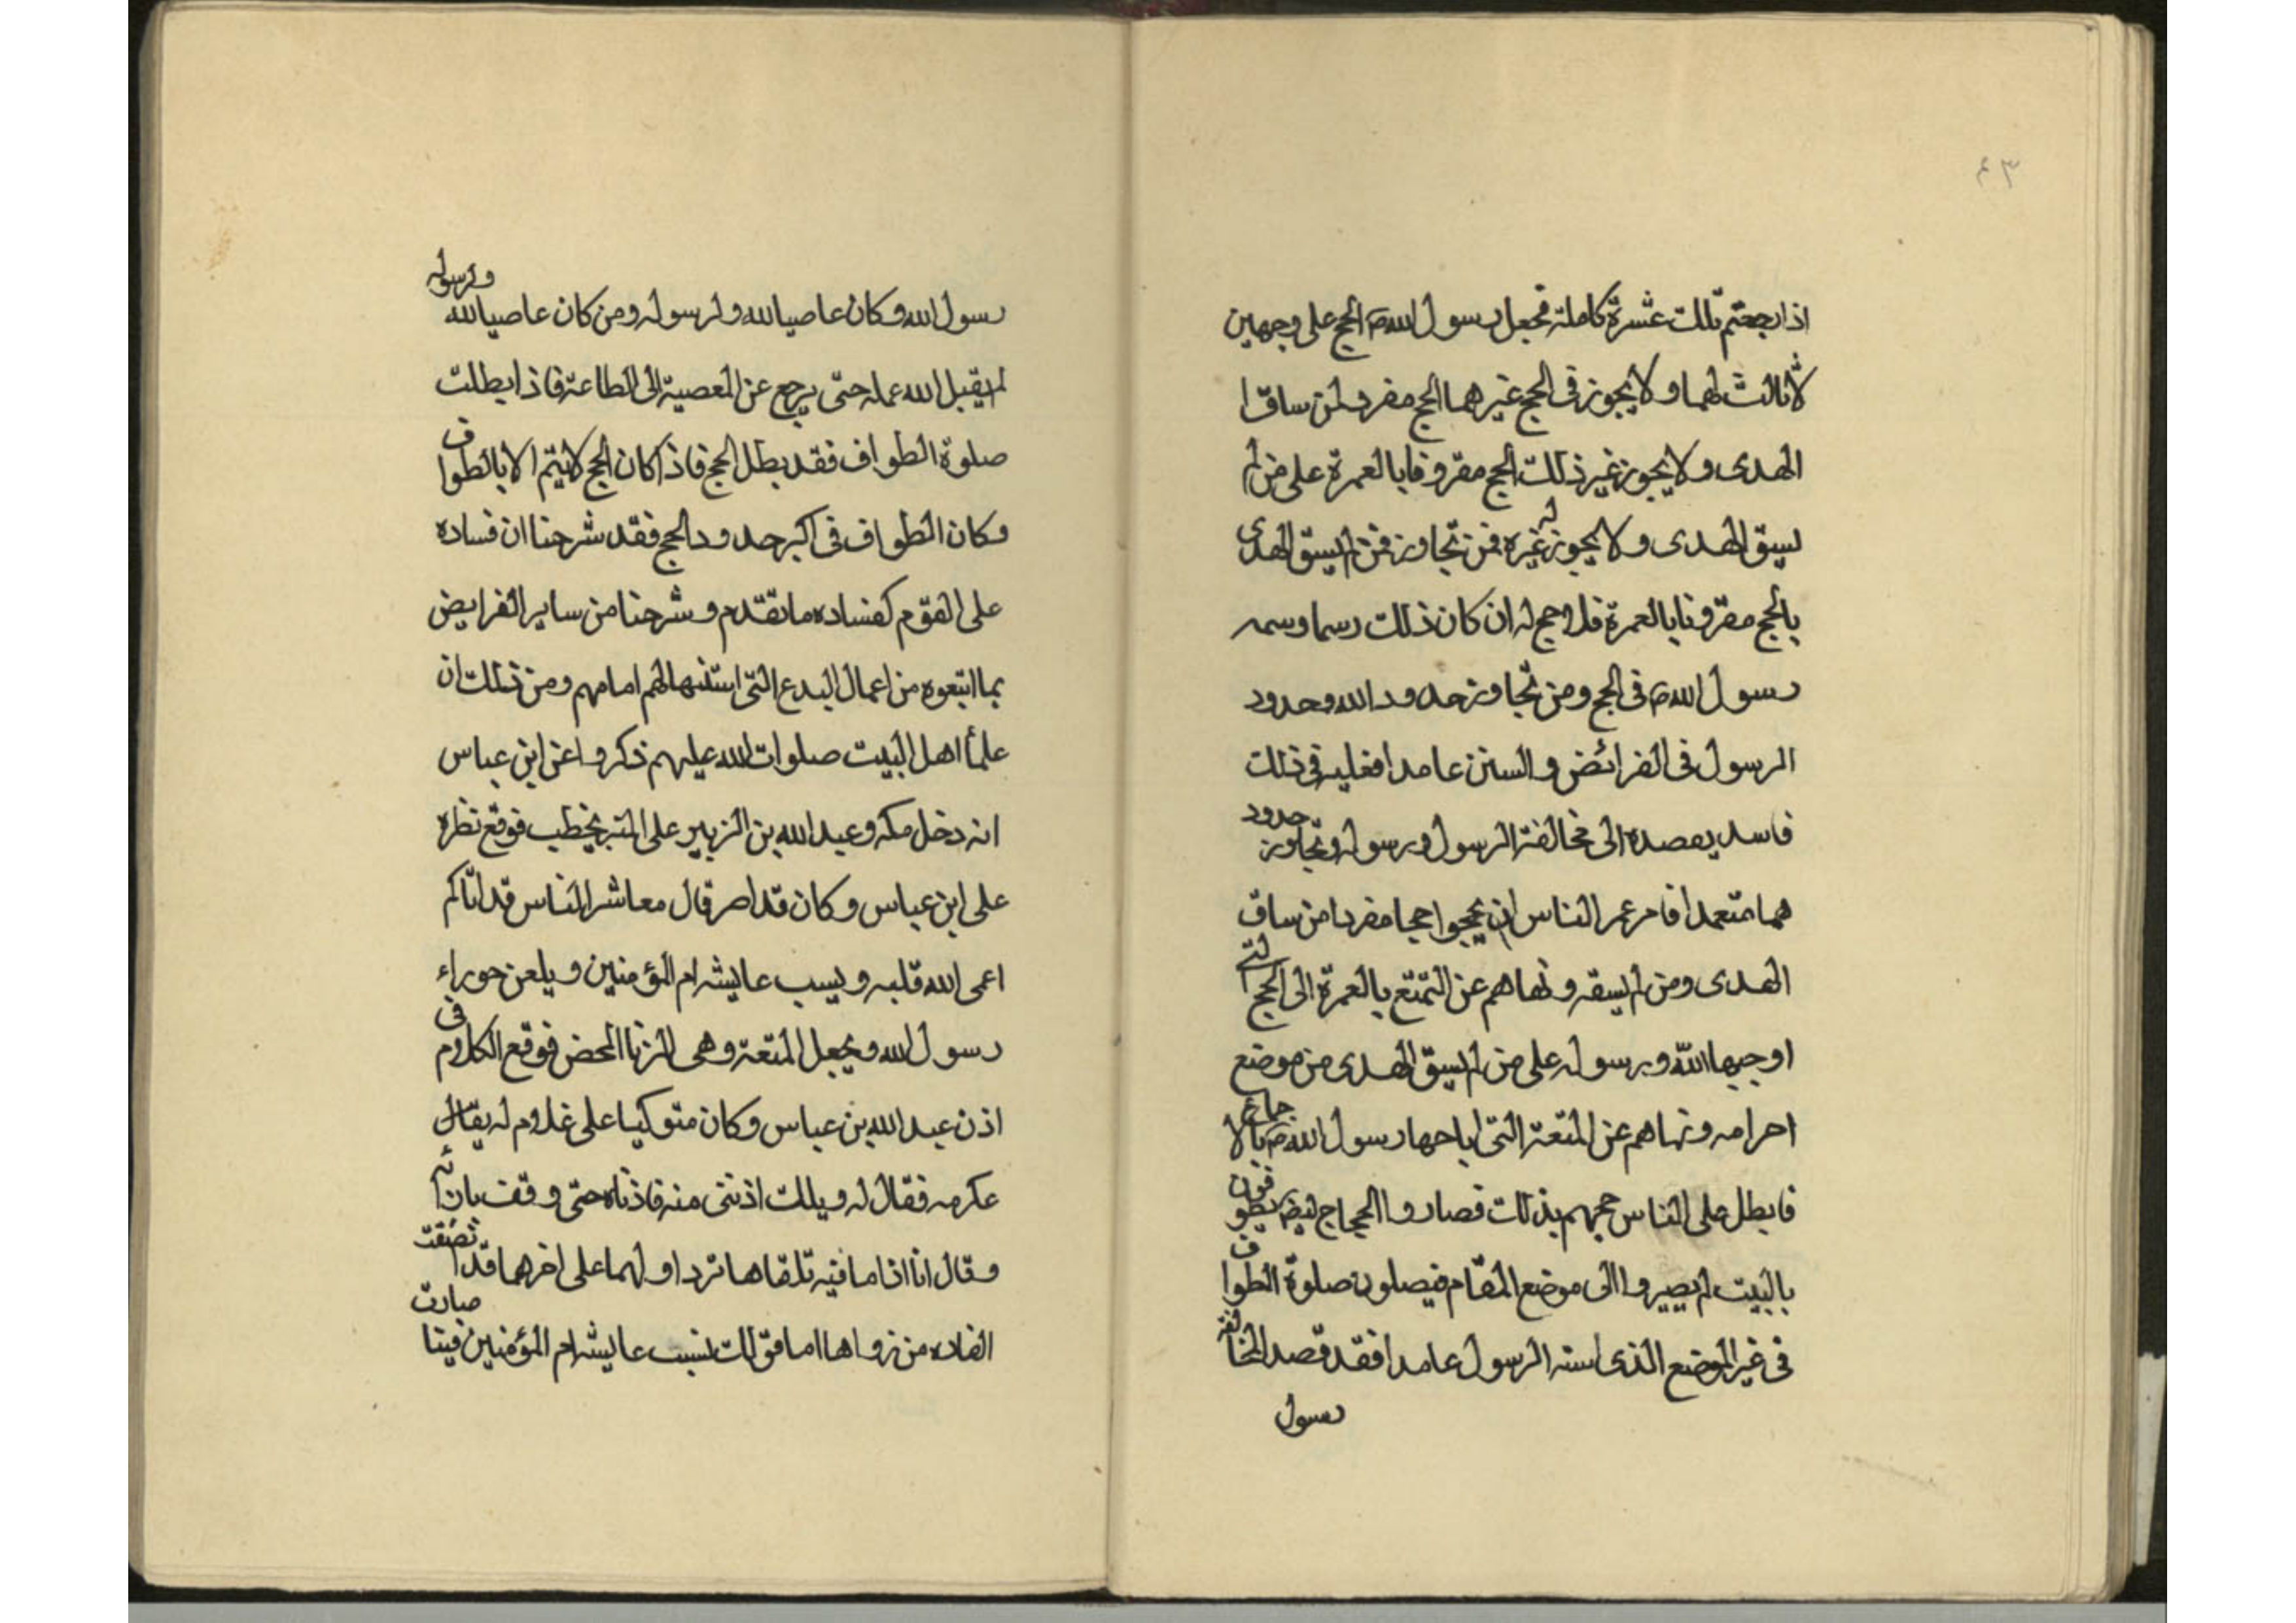 ٤٣
اذا رجعتم تلك عشرة كاملة فجعل رسول الله ص الحج على وجهين
لا ثالث لهما ولا يجوز فى الحج غيرهما الحج مفرد لمن ساق ا
الهدى ولا يجوز غير ذلك الحج مقروفا بالعمرة على من لم
يسق الهدى ولا يجوز له غيره فمن تجاوز فمن لم يسق الهدى
بالحج مقرونا بالعمرة فلا حج له ان كان ذلك رسما وسمه
رسول الله ص فى الحج ومن تجاوز حدود الله وحدود
الرسول فى الفرائض والسنن عامدا فعليه فى ذلك
فاسد بقصده الى مخالفة الرسول ورسوله وتجاوز حدود
هما متعمدا فامر عمر الناس ان يحجوا حجا مفردا من ساق
الهدى ومن لم يسقه ونهاهم عن التمتع بالعمرة الى الحج التى
اوجبها الله ورسوله على من لم يسق الهدى من موضع
احرامه ونهاهم عن المتعة التى اباحها رسول الله ص بالا جماع
فابطل على الناس حجهم بذلك فصاروا الحجاج يطو فون
بالبيت لم يصيروا الى موضع المقام فيصلون صلوة الطوا ف
فى غير الموضع الذى استه الرسول عامدا فقد قصد المخا لفة
رسول
رسول الله وكان عاصيا لله ولرسوله ومن كان عاصيا لله ولرسوله
لم يقبل الله عمله حتى يرجع عن المعصية الى الطاعة فاذا بطلت
صلوة الطواف فقد بطل الحج فاذا كان الحج لا يتم الا بالطوا ف
وكان الطواف فى اكبر حدود الحج فقد شرحنا ان فساده
على القوم كفساده ما تقدم وشرحنا من ساير الفرايض
بما اتبعوه من اعمال البدع التى استنها لهم امامهم ومن ذلك ان
علمأ اهل البيت صلوات الله عليهم ذكروا عن ابن عباس
انه دخل مكه وعبد الله بن الزبير على المنبر يخطب فوقع نظره
على ابن عباس وكان قد اضر قال معاشر الناس قد اتاكم
اعمى الله قلبه ويسب عايشه ام المؤمنين ويلعن حوراء
رسول الله ويجعل المتعة وهى الزنا المحض فوقع الكلام فى
اذن عبد الله بن عباس وكان متوكيا على غلام له يقال
عكرمه فقال له ويلك اذننى منه فاذناه حتى وقف بازا ئه
وقال انا اذا ما فيه تلقاها نرد اولهما على اخرهما قد ا نصفت
الفاده من زواها اما قولك نسب عايشه ام المؤمنين فينا صارت